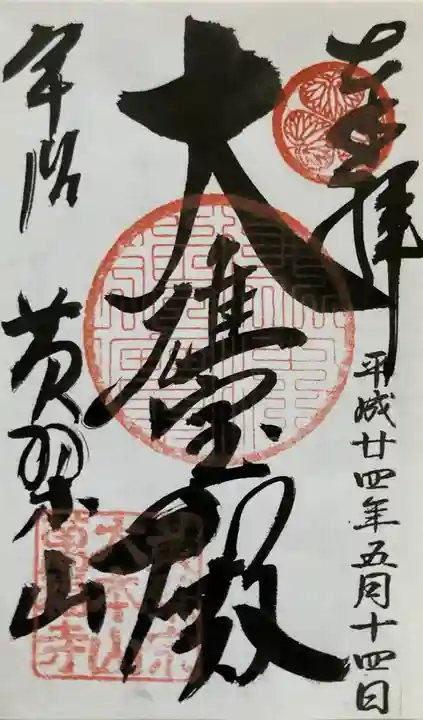 奉拝
平成廿四年五月十四日
大雄宝殿
宇治 黄檗山
大本山
萬福寺